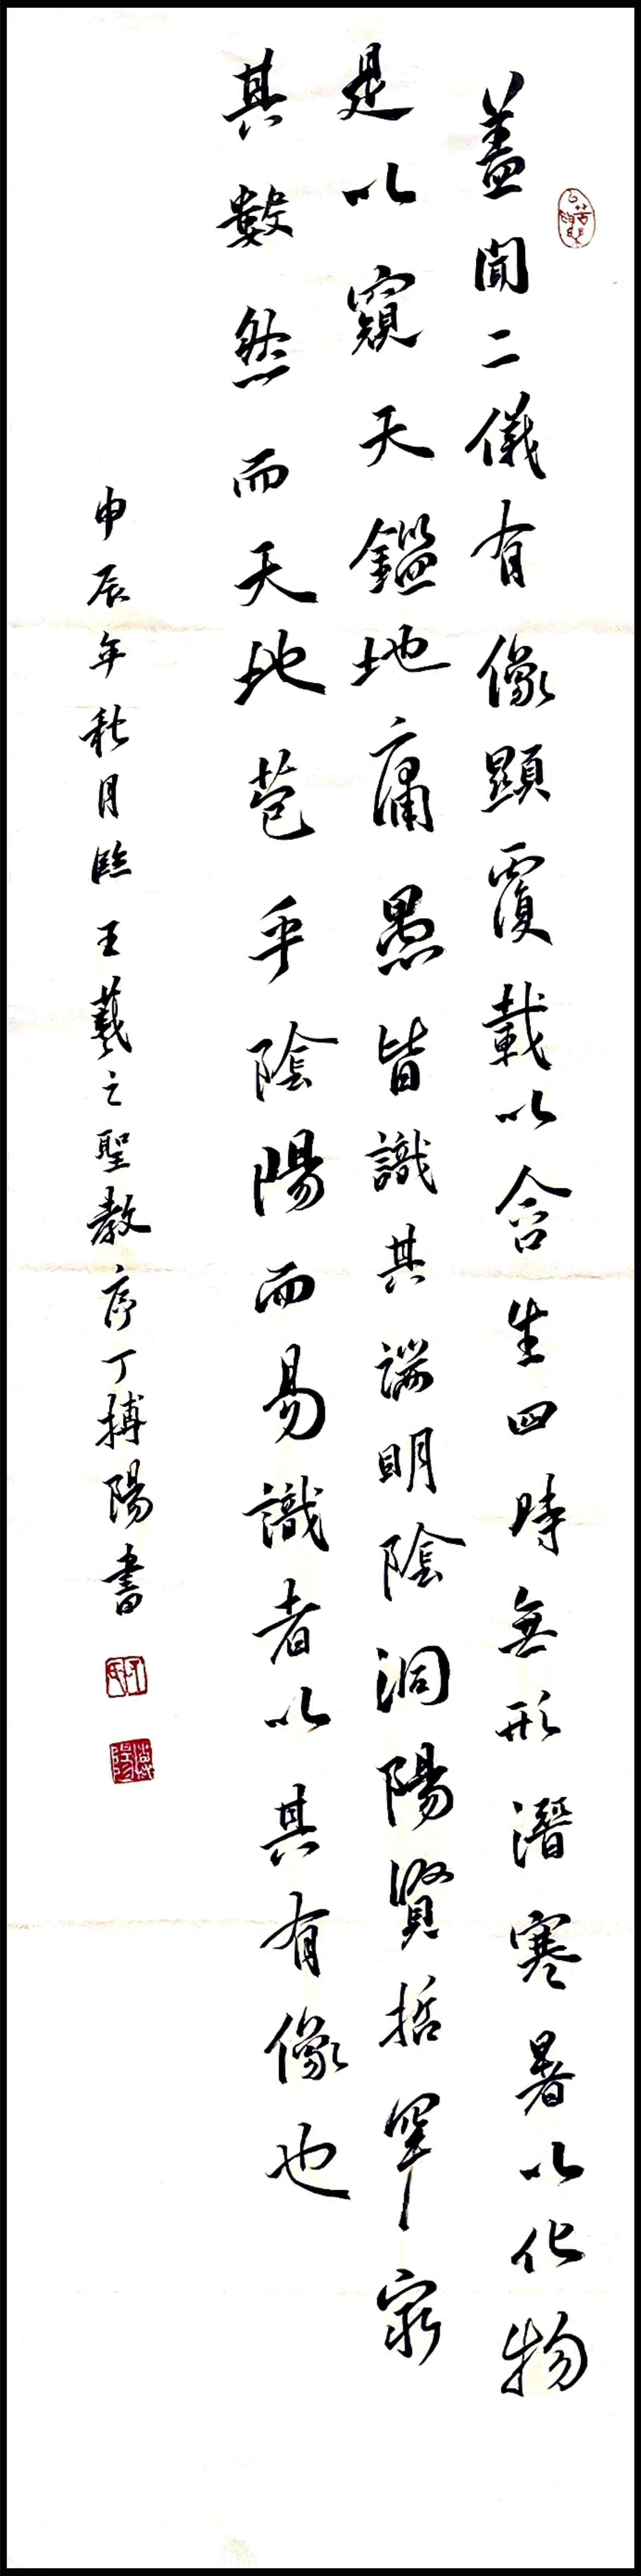 蓋聞二儀有像顯覆載以含生四時無形潛寒暑以化物
是以窺天鑑地庸愚皆識其端明陰洞陽賢哲罕窮
其數然而天地苞乎陰陽而易識者以其有像也
申辰年秋月臨王羲之聖教序丁搏陽書